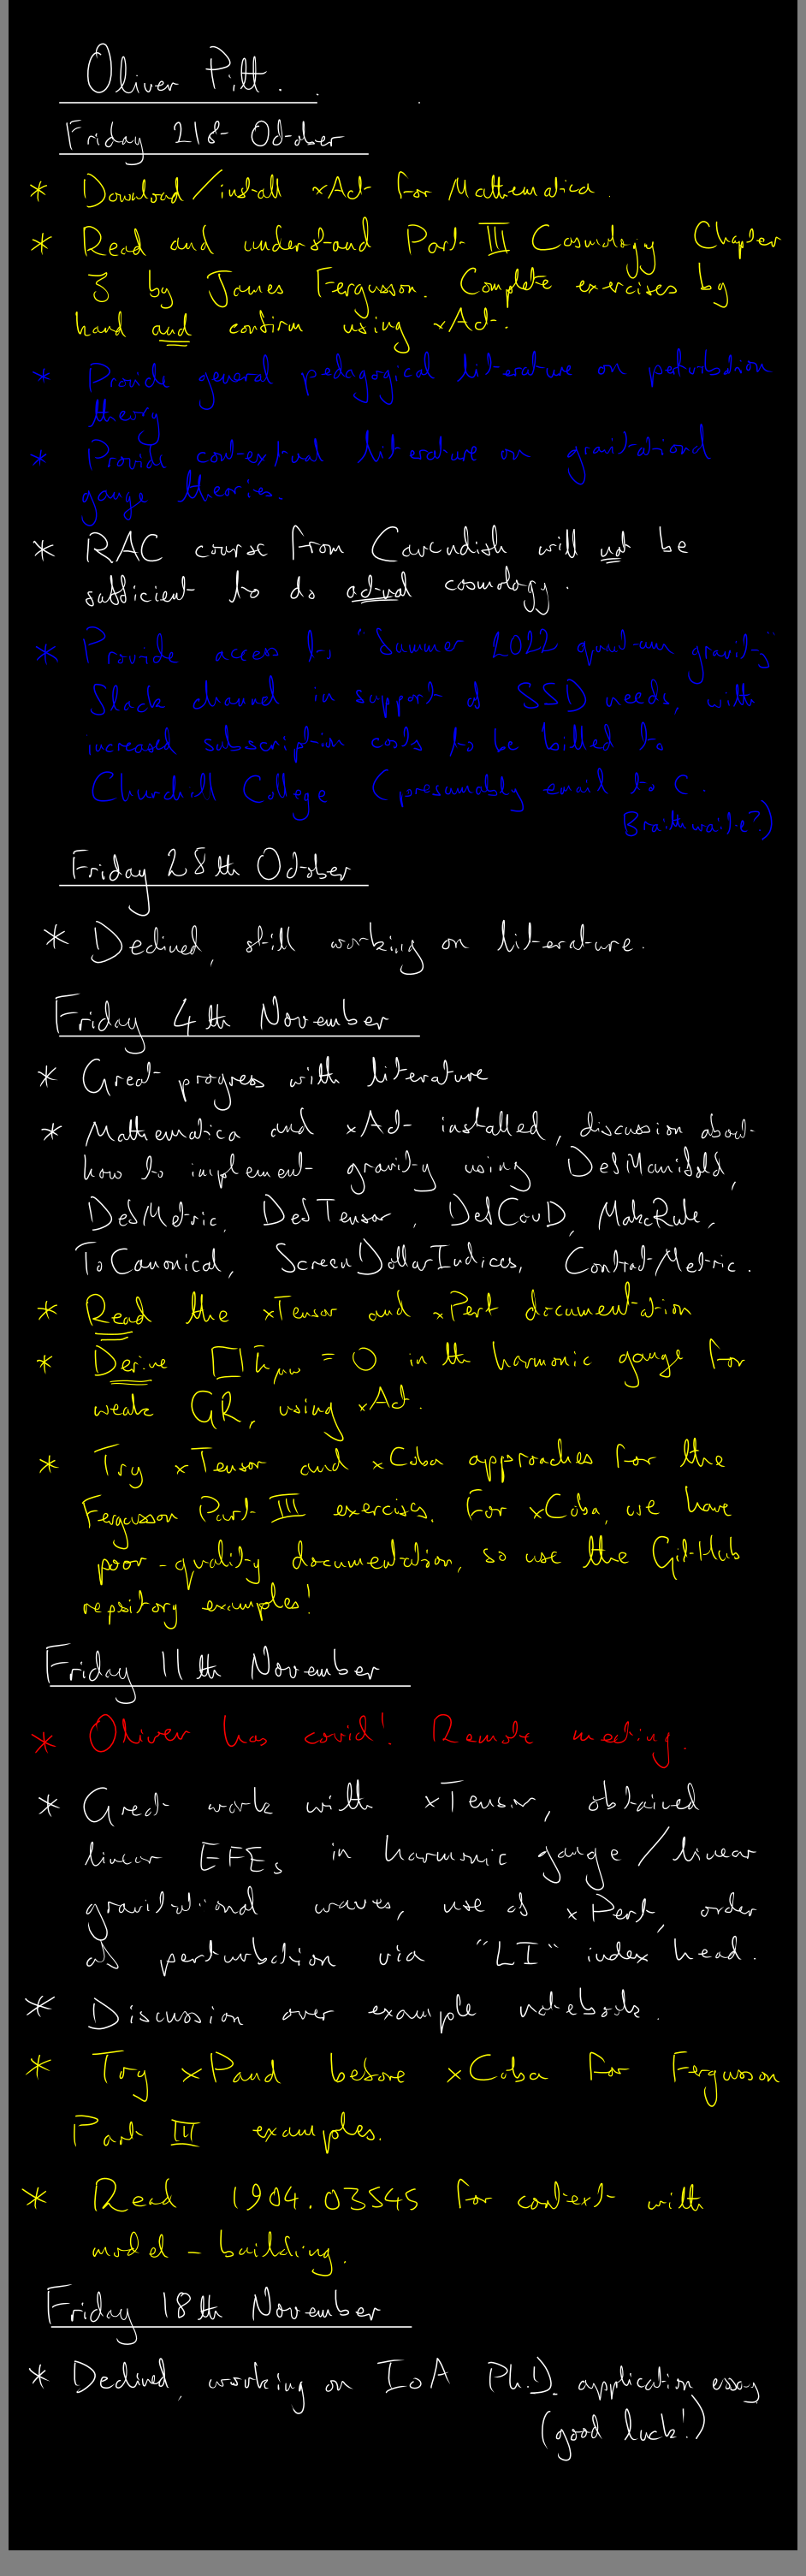 Oliver Pitt.
Friday 21st October
* Download/install xAct for Mathematica.
* Read and understand Part III Cosmology Chapter
3 by James Fergusson. Complete exercises by
hand and confirm using xAct.
* Provide general pedagogical literature on perturbation
theory
* Provide contextual literature on gravitational
gauge theories.
* RAC course from Cavendish will not be
sufficient to do actual cosmology.
* Provide access to "Summer 2022 quantum gravity"
Slack channel in support of SSD needs, with
increased subscription costs to be billed to
Churchill College (presumably email to C.
Braithwaite?)
Friday 28th October
* Declined, still working on literature.
Friday 4th November
* Great progress with literature
* Mathematica and xAct installed, discussion about
how to implement gravity using DefManifold,
DefMetric, DefTensor, DefCovD, MakeRule,
ToCanonical, ScreenDollarIndices, ContractMetric.
* Read the xTensor and xPert documentation
* Derive □h̄μν = 0 in the harmonic gauge for
weak GR, using xAct.
* Try xTensor and xCoba approaches for the
Fergusson Part III exercises. For xCoba, we have
poor-quality documentation, so use the GitHub
repsitory examples!
Friday 11th November
* Oliver has covid! Remote meeting.
* Great work with xTensor, obtained
linear EFEs in harmonic gauge/linear
gravitational waves, use of xPert, order
of perturbation via "LI" index head.
* Discussion over example notebooks.
* Try xPand before xCoba for Fergusson
Part III examples.
* Read 1904.03545 for context with
model-building.
Friday 18th November
* Declined, working on IoA Ph.D. application essay
(good luck!)